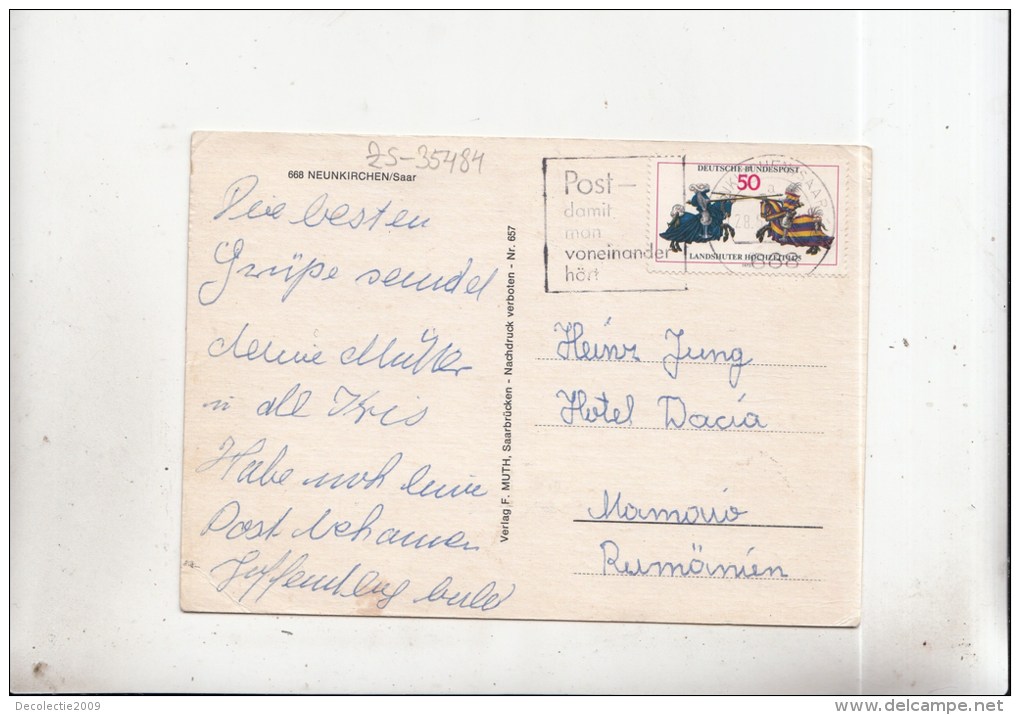 25-35484
668 NEUNKIRCHEN/Saar
Die besten
Grüße sendet
deine Mutter
u all Kris
Habe noch keine
Post bekommen
Hoffentlich bald
Verlag F. MUTH, Saarbrücken - Nachdruck verboten - Nr. 657
Post—
damit
man
voneinander
hört
DEUTSCHE BUNDESPOST
50
LANDSHUTER HOCHZEIT 1475
668
Heinz Jung
Hotel Dacia
Mamaia
Rumänien
Decolectie2009
delcampe.net